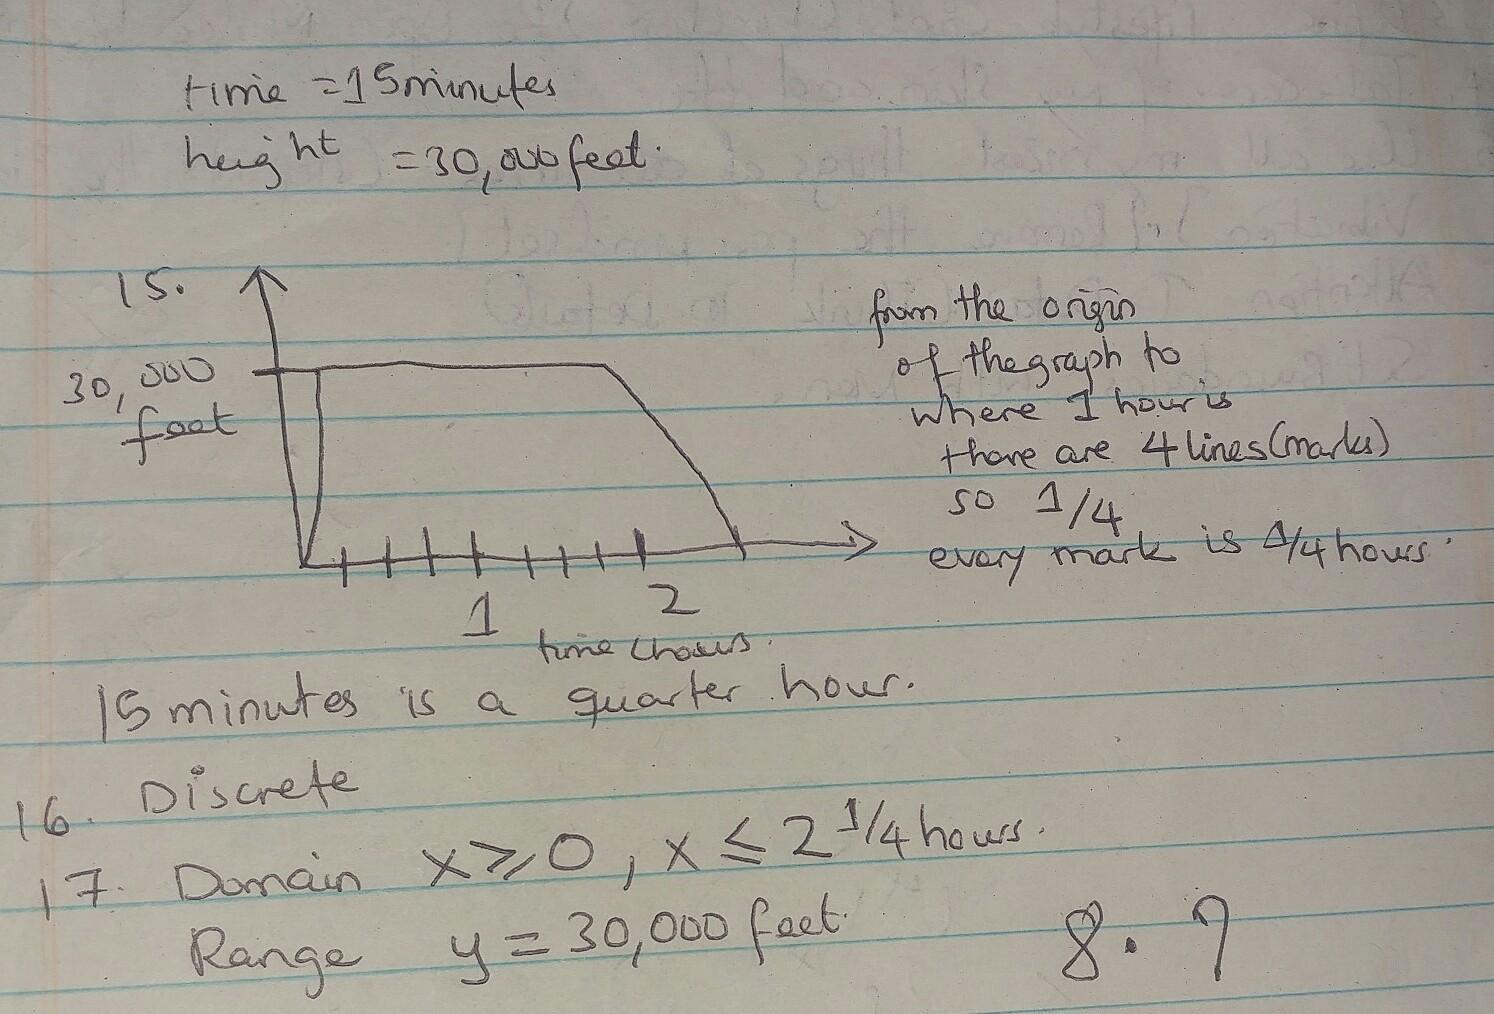 time = 15 minutes
height = 30,000 feet.
15.
30,000
feet
from the origin
of the graph to
where 1 hour is
there are 4 lines (marks)
so 1/4
every mark is 1/4 hours.
1
2
time (hours.
15 minutes is a quarter hour.
16. Discrete
17. Domain x ≥ 0, x ≤ 2 1/4 hours.
Range y = 30,000 feet.